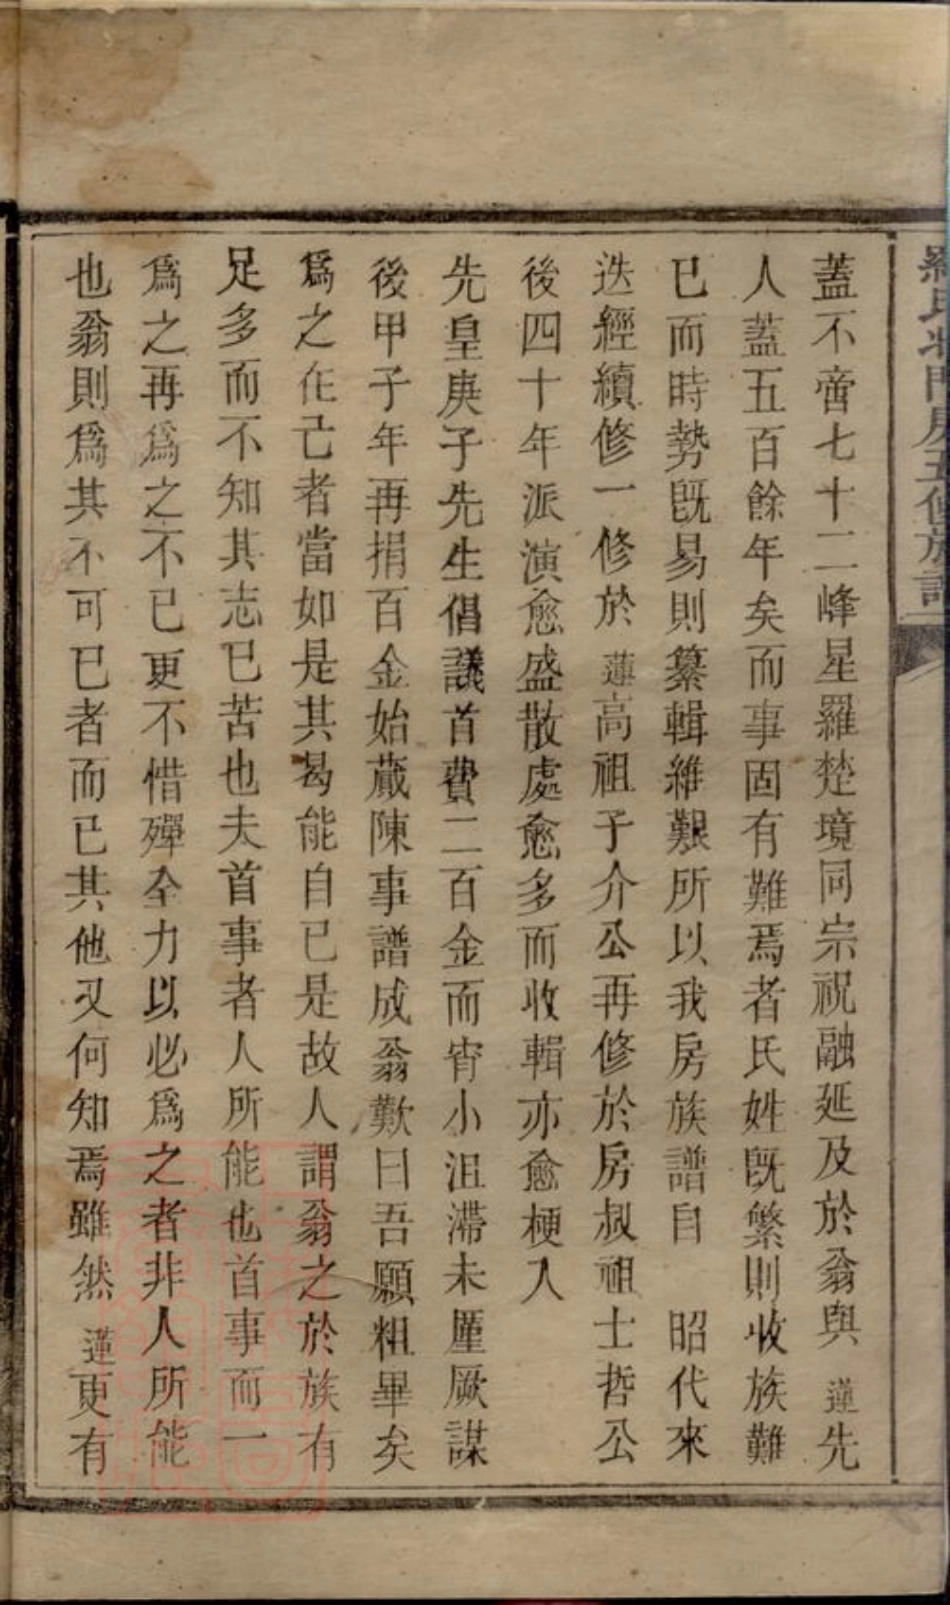 氏 門房五修族譜
蓋不啻七十二峰星羅楚境同宗祝融延及於翁與蓮先
人蓋五百餘年矣而事固有難焉者氏姓旣繁則收族難
已而時勢旣易則纂輯維艱所以我房族譜自 昭代來
迭經續修一修於蓮高祖于介公再修於房叔祖士哲公
後四十年派演愈盛散處愈多而收輯亦愈梗入
先皇庚子先生倡議首費二百金而宵小沮滯未厪厥謀
後甲子年再捐百金始蕆陳事譜成翁歎曰吾願粗畢矣
爲之在己者當如是其曷能自已是故人謂翁之於族有
足多而不知其志已苦也夫首事者人所能也首事而一
爲之再爲之不已更不惜殫全力以必爲之者非人所能
也翁則爲其不可已者而已其他又何知焉雖然蓮更有